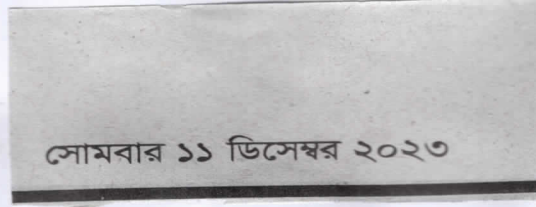 সোমবার ১১ ডিসেম্বর ২০২৩